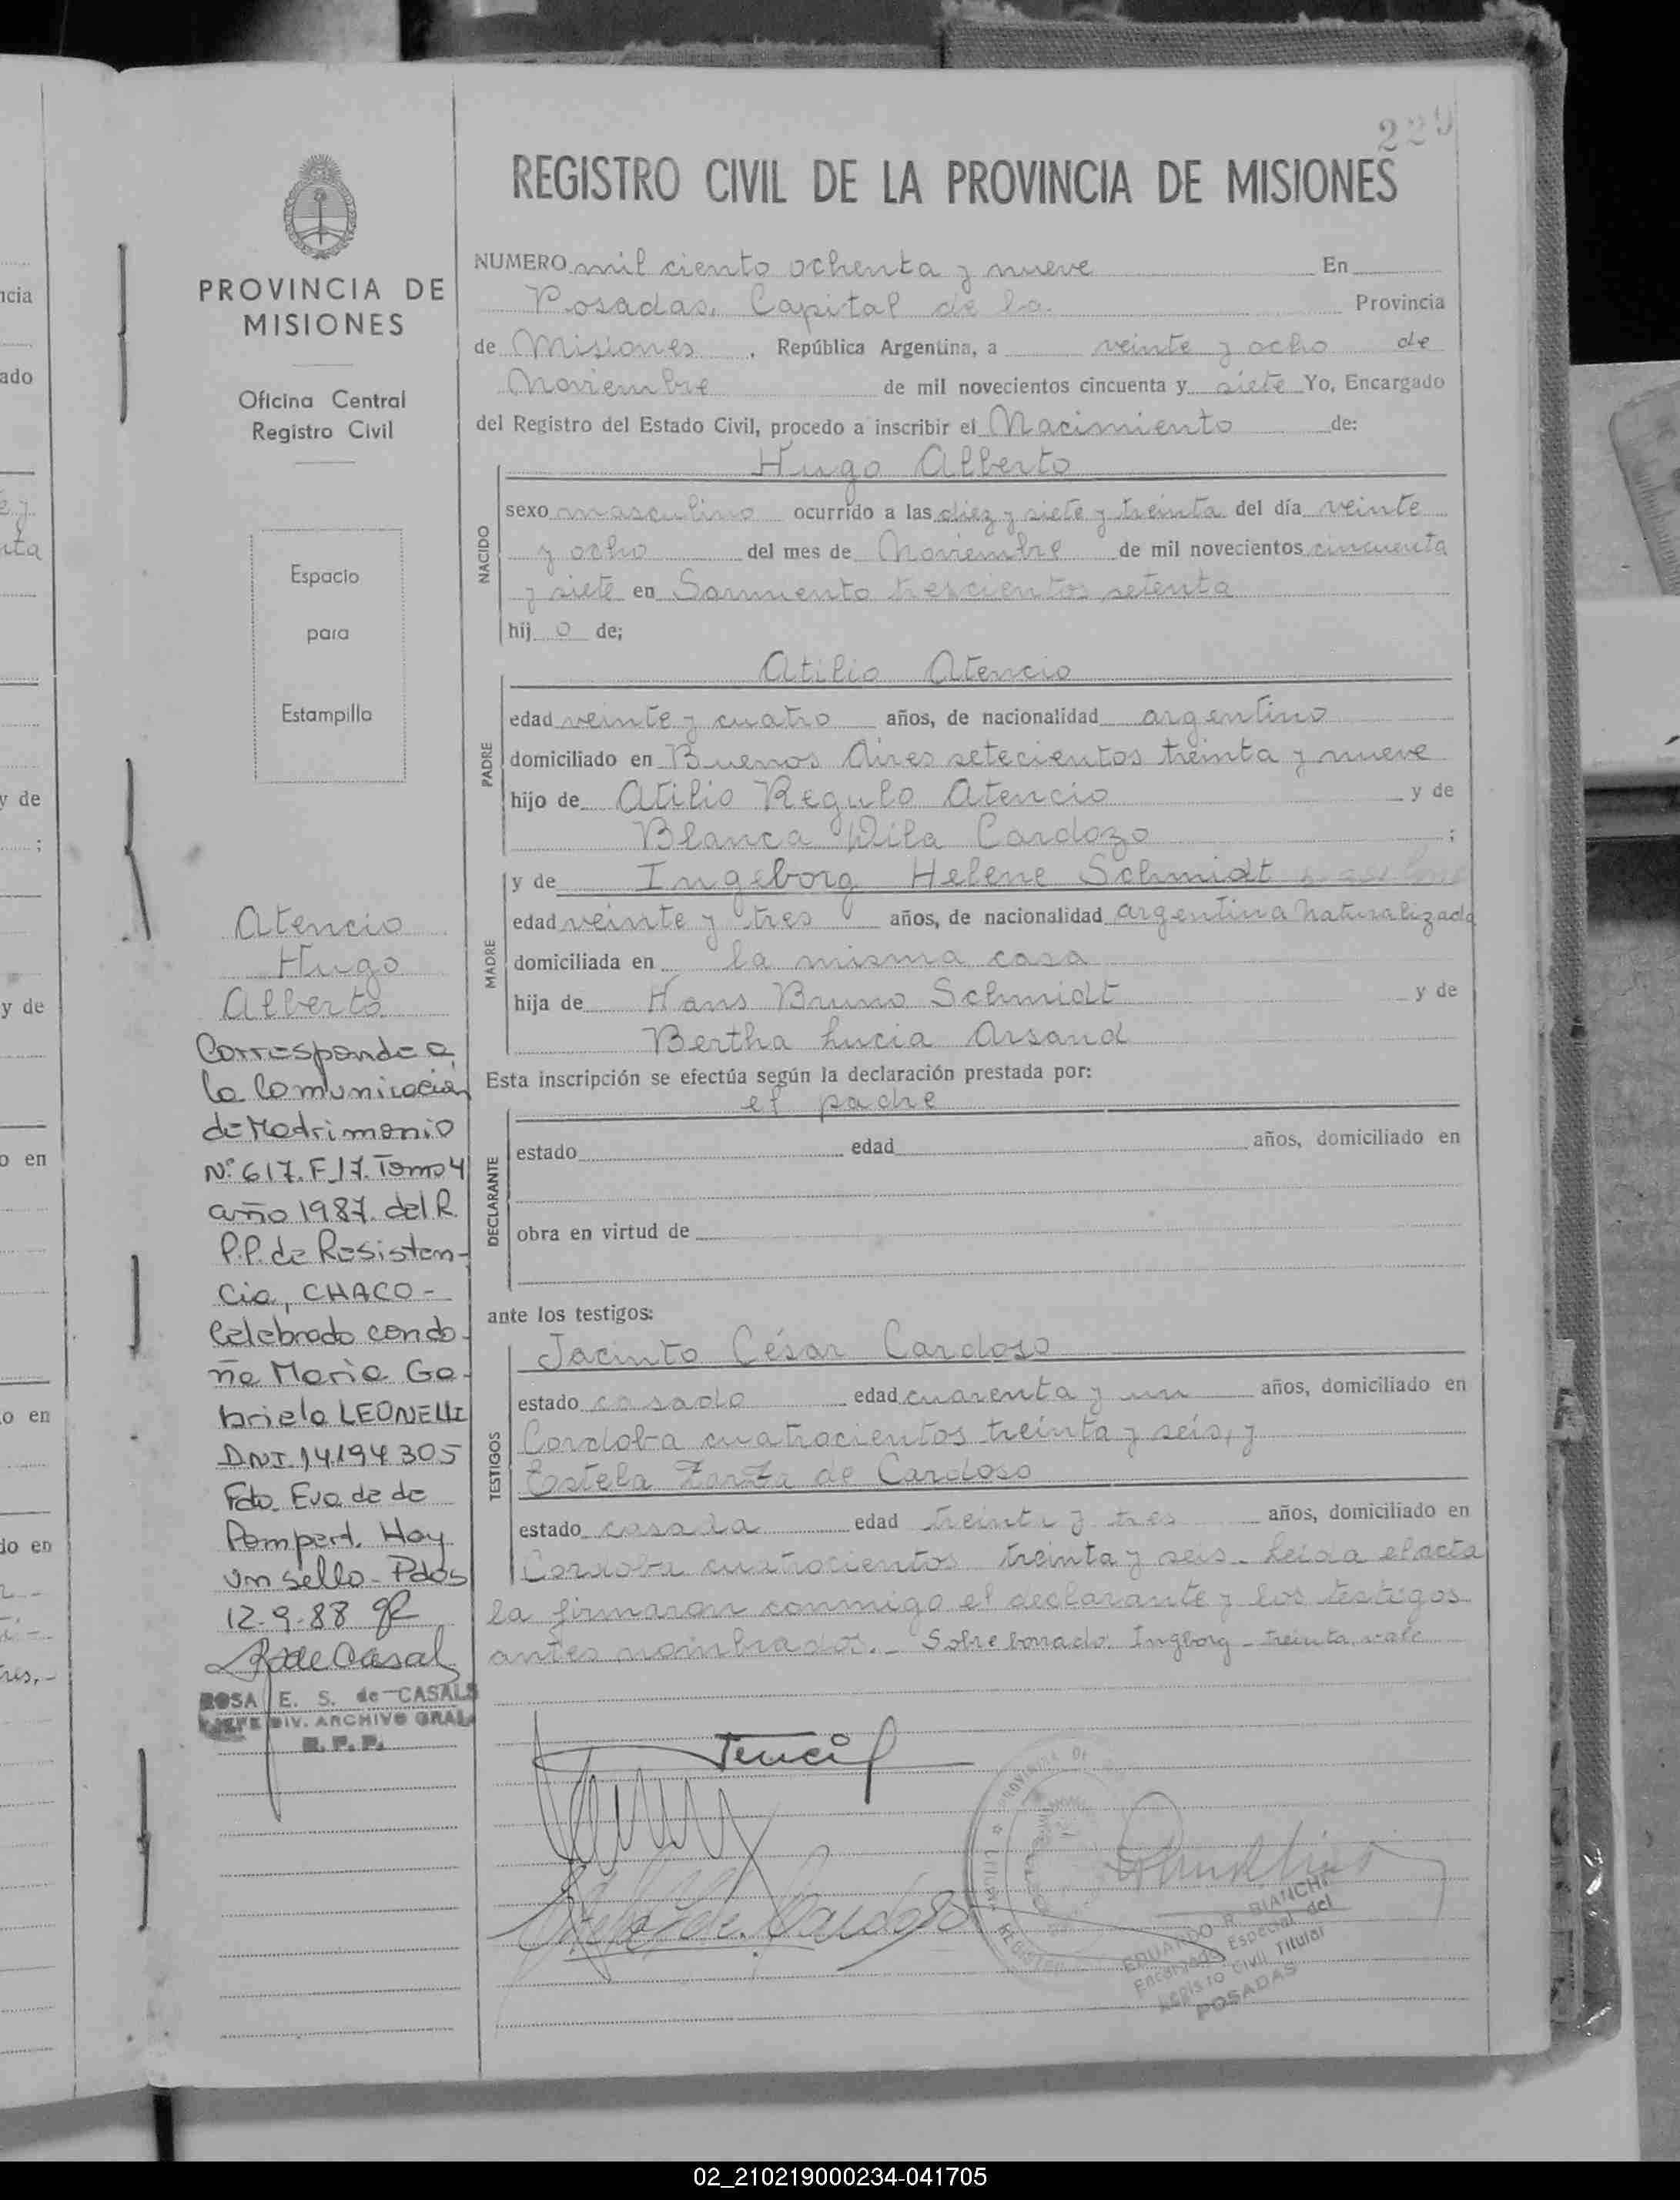 229
REGISTRO CIVIL DE LA PROVINCIA DE MISIONES
PROVINCIA DE
MISIONES
Oficina Central
Registro Civil
Espacio
para
Estampilla
Atencio
Hugo
Alberto
Corresponde a
la Comunicación
de Matrimonio
Nº 617. F 17. Tomo 4
año 1987. del R.
P.P. de Resisten-
cia, CHACO -
Celebrado con do-
ña Maria Ga-
briela LEONELLI
DNI. 14.194.305
Fdo. Eva de de
Pompert. Hay
un sello - Pdas
12-9-88
R de Casals
ROSA E. S. de CASALS
JEFE DIV. ARCHIVO GRAL.
R. P. P.
NUMERO mil ciento ochenta y nueve En
Posadas, Capital de la Provincia
de Misiones, República Argentina, a veinte y ocho de
Noviembre de mil novecientos cincuenta y siete Yo, Encargado
del Registro del Estado Civil, procedo a inscribir el Nacimiento de:
Hugo Alberto
NACIDO
sexo masculino ocurrido a las diez y siete y treinta del día veinte
y ocho del mes de Noviembre de mil novecientos cincuenta
y siete en Sarmiento trescientos setenta
hij o de;
Atilio Atencio
PADRE
edad veinte y cuatro años, de nacionalidad argentino
domiciliado en Buenos Aires setecientos treinta y nueve
hijo de Atilio Regulo Atencio y de
Blanca Dila Cardozo ;
y de Ingeborg Helene Schmidt
MADRE
edad veinte y tres años, de nacionalidad argentina naturalizada
domiciliada en la misma casa
hija de Hans Bruno Schmidt y de
Bertha Lucia Arsand
Esta inscripción se efectúa según la declaración prestada por:
el padre
DECLARANTE
estado edad años, domiciliado en
obra en virtud de
ante los testigos:
Jacinto César Cardoso
TESTIGOS
estado casado edad cuarenta y un años, domiciliado en
Cordoba cuatrocientos treinta y seis, y
Estela Zarza de Cardoso
estado casada edad treinta y tres años, domiciliado en
Cordoba cuatrocientos treinta y seis. Leida el acta
la firmaron conmigo el declarante y los testigos
antes nombrados.- Sobre borrado: Ingborg - treinta, vale
Estela Z de Cardoso
EDUARDO R. BIANCHI
Encargado Especial del
Registro Civil Titular
POSADAS
icia
ado
y de
;
y de
o en
o en
do en
02_210219000234-041705